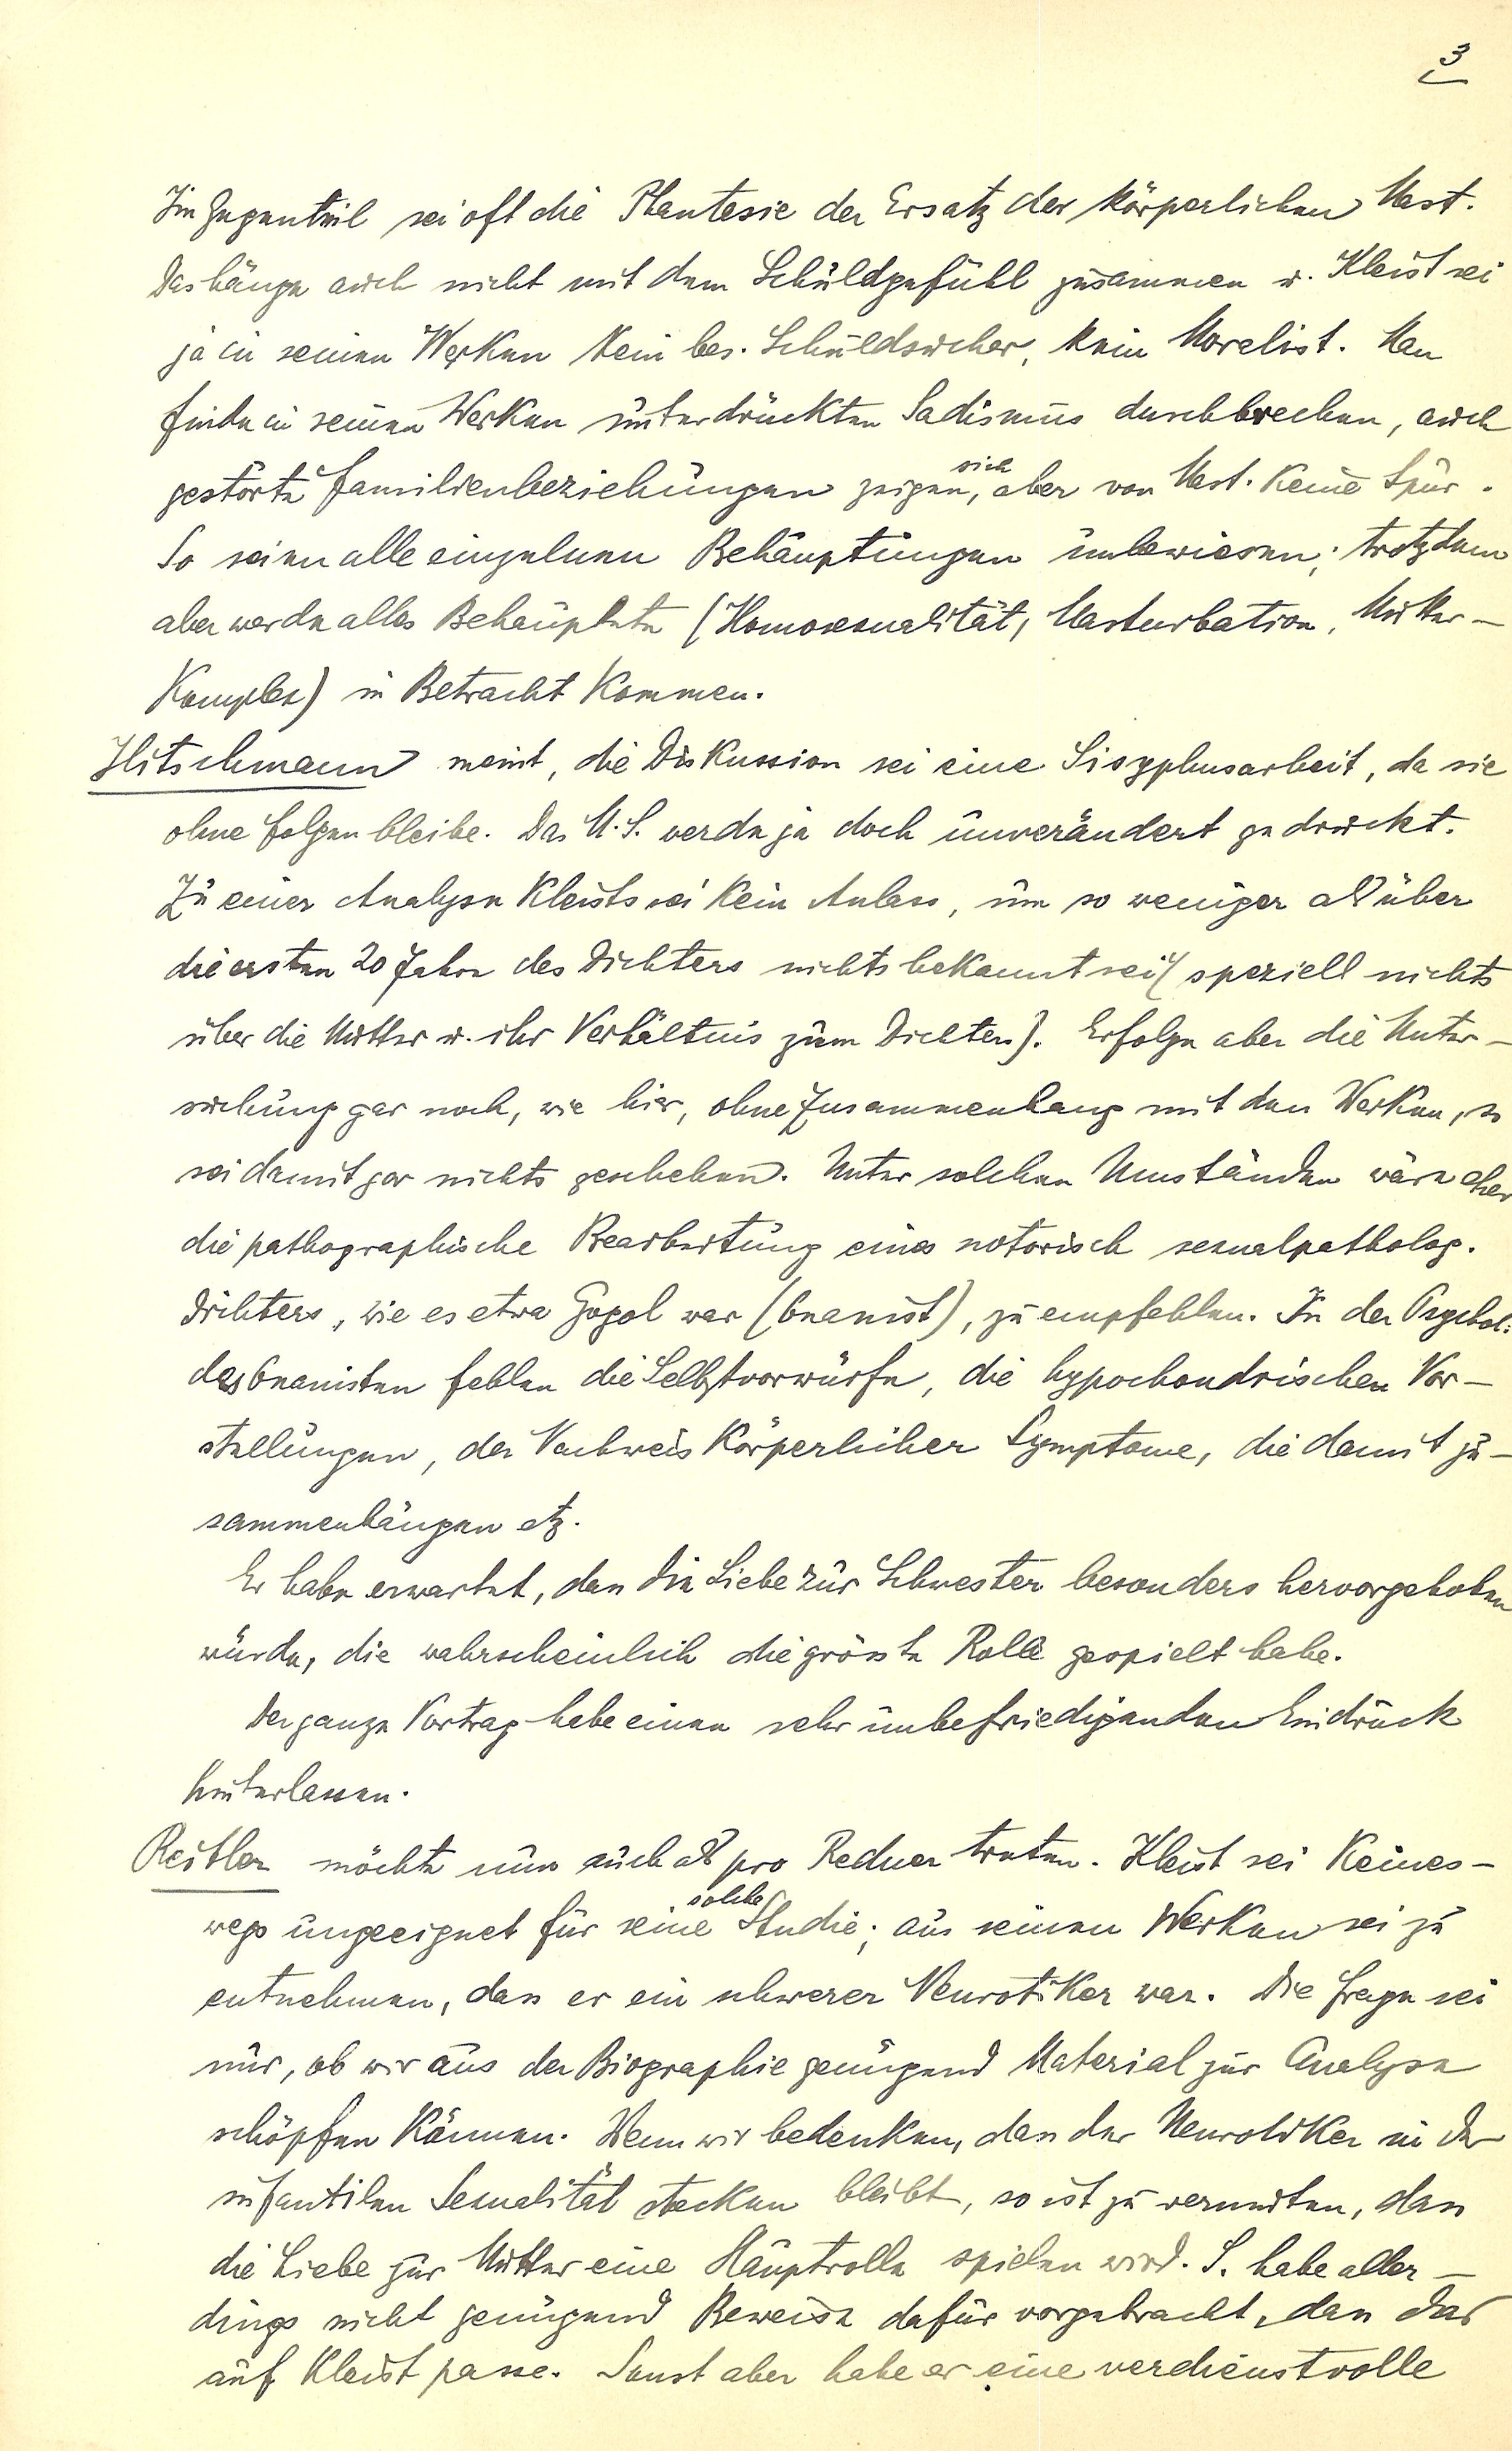 3
Im Gegenteil sei oft die Phantasie der Ersatz der körperlichen Mast.
Das hänge auch nicht mit dem Schuldgefühl zusammen u. Kleist sei
ja in seinen Werken kein bes. Schuldsucher, kein Moralist. Man
finde in seinen Werken unterdrückten Sadismus durchbrechen, auch
gestörte Familienbeziehungen zeigen, sich aber von Mast. keine Spur.
So seien alle einzelnen Behauptungen unbewiesen; trotzdem
aber werde alles Behauptete (Homosexualität, Masturbation, Mutter-
Komplex) in Betracht kommen.
Hitschmann meint, die Diskussion sei eine Sisyphusarbeit, da sie
ohne Folgen bleibe. Das M.S. werde ja doch unverändert gedruckt.
Zu einer Analyse Kleists sei kein Anlass, um so weniger als über
die ersten 20 Jahre des Dichters nichts bekannt sei (speziell nichts
über die Mutter u. ihr Verhältnis zum Dichter). Erfolge aber die Unter-
suchung gar noch, wie hier, ohne Zusammenhang mit den Werken, so
sei damit gar nichts geschehen. Unter solchen Umständen wäre eher
die pathographische Bearbeitung eines notorisch sexualpatholog.
Dichters, wie es etwa Gogol war (Onanist), zu empfehlen. In der Psychol.
des Onanisten fehlen die Selbstvorwürfe, die hypochondrischen Vor-
stellungen, der Nachweis körperlicher Symptome, die damit zu-
sammenhängen etz.
Er habe erwartet, dass die Liebe zur Schwester besonders hervorgehoben
würde, die wahrscheinlich die grösste Rolle gespielt habe.
Der ganze Vortrag habe einen sehr unbefriedigenden Eindruck
hinterlassen.
Reitler möchte nun auch als pro Redner treten. Kleist sei keines-
wegs ungeeignet für seine solche Studie; aus seinen Werken sei zu
entnehmen, dass er ein schwerer Neurotiker war. Die Frage sei
nur, ob wir aus der Biographie genügend Material zur Analyse
schöpfen können. Wenn wir bedenken, dass der Neurotiker in der
infantilen Sexualität stecken bleibt, so ist zu vermuten, dass
die Liebe zur Mutter eine Hauptrolle spielen wird. S. habe aller-
dings nicht genügend Beweise dafür vorgebracht, dass das
auf Kleist passe. Sonst aber habe er eine verdienstvolle